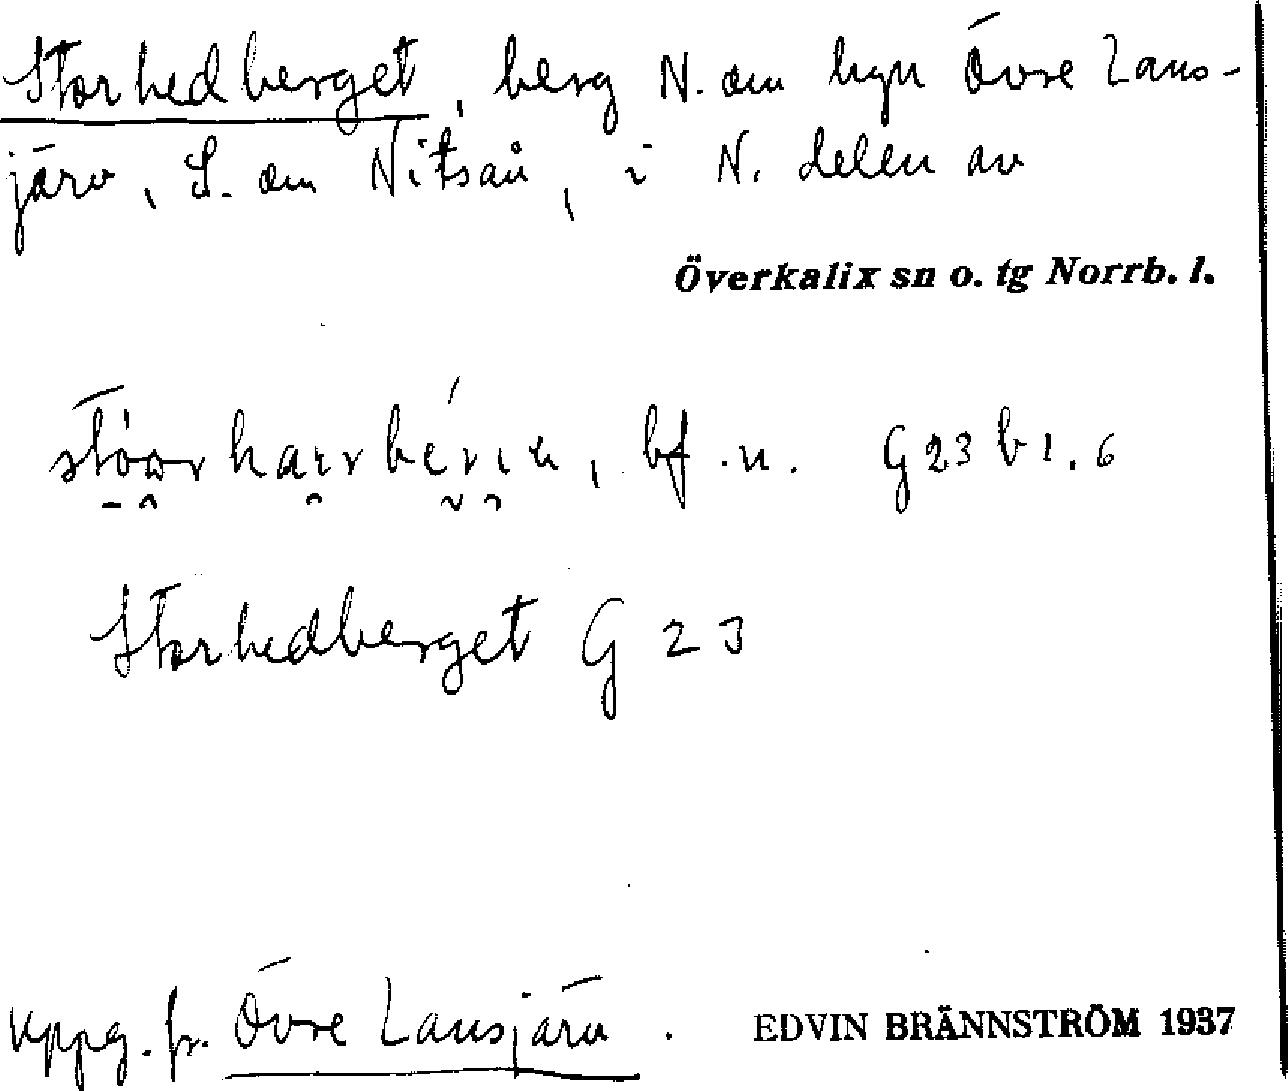 Storhedberget, berg N. om byn Övre Lans-
järv, S. om Nitsån, i N. delen av
Överkalix sn o. tg Norrb. l.
bf. n. G23 b 1.6
Storhedberget G 23
uppg. fr. Övre Lansjärv. EDVIN BRÄNNSTRÖM 1937